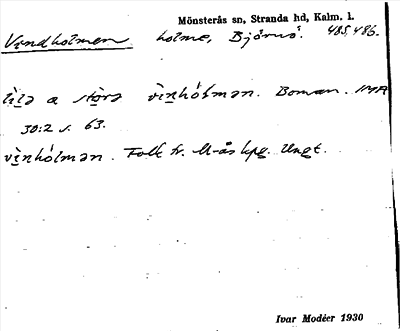 Mönsterås sn, Stranda hd, Kalm. l.
Vendholmen holme, Björnö. 485.486.
lìla o stòra vìnhólmən. Boman. IMA
30:2 s. 63.
vìnhólmən. Folk fr. M-ås kpg. Ungt.
Ivar Modéer 1930